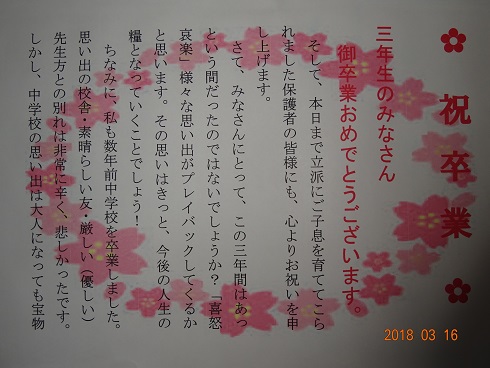 ✿ 祝 卒 業 ✿
三年生のみなさん
御卒業おめでとうございます。
そして、本日まで立派にご子息を育ててこら
れました保護者の皆様にも、心よりお祝いを申
し上げます。
さて、みなさんにとって、この三年間はあっ
という間だったのではないでしょうか？「喜怒
哀楽」様々な思い出がプレイバックしてくるか
と思います。その思いはきっと、今後の人生の
糧となっていくことでしょう！
ちなみに、私も数年前中学校を卒業しました。
思い出の校舎・素晴らしい友・厳しい（優しい）
先生方との別れは非常に辛く、悲しかったです。
しかし、中学校の思い出は大人になっても宝物
2018 03 16